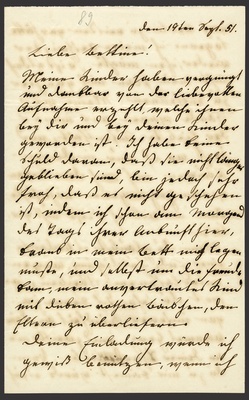 82
den 19ten Sept. 51.
Liebe Bettine!
Meine Kinder haben vergnügt
und dankbar von der liebevollen
Aufnahme erzählt, welche ihnen
bey dir und bey deinen Kinder
geworden ist. Ich habe keine
schuld daran, daß sie nicht länger
geblieben sind, bin jedoch sehr
froh, daß es nicht geschehen
ist, indem ich schon am
des Tags ihrer Ankunft hier,
krank in mein Bett mich legen
mußte, und selbst um die Freude
kam, mein anvertrautes Kind
mit dicken rothen Backen, den
Eltern zu überliefern.
Deine Einladung würde ich
gewiß benützen, wenn ich